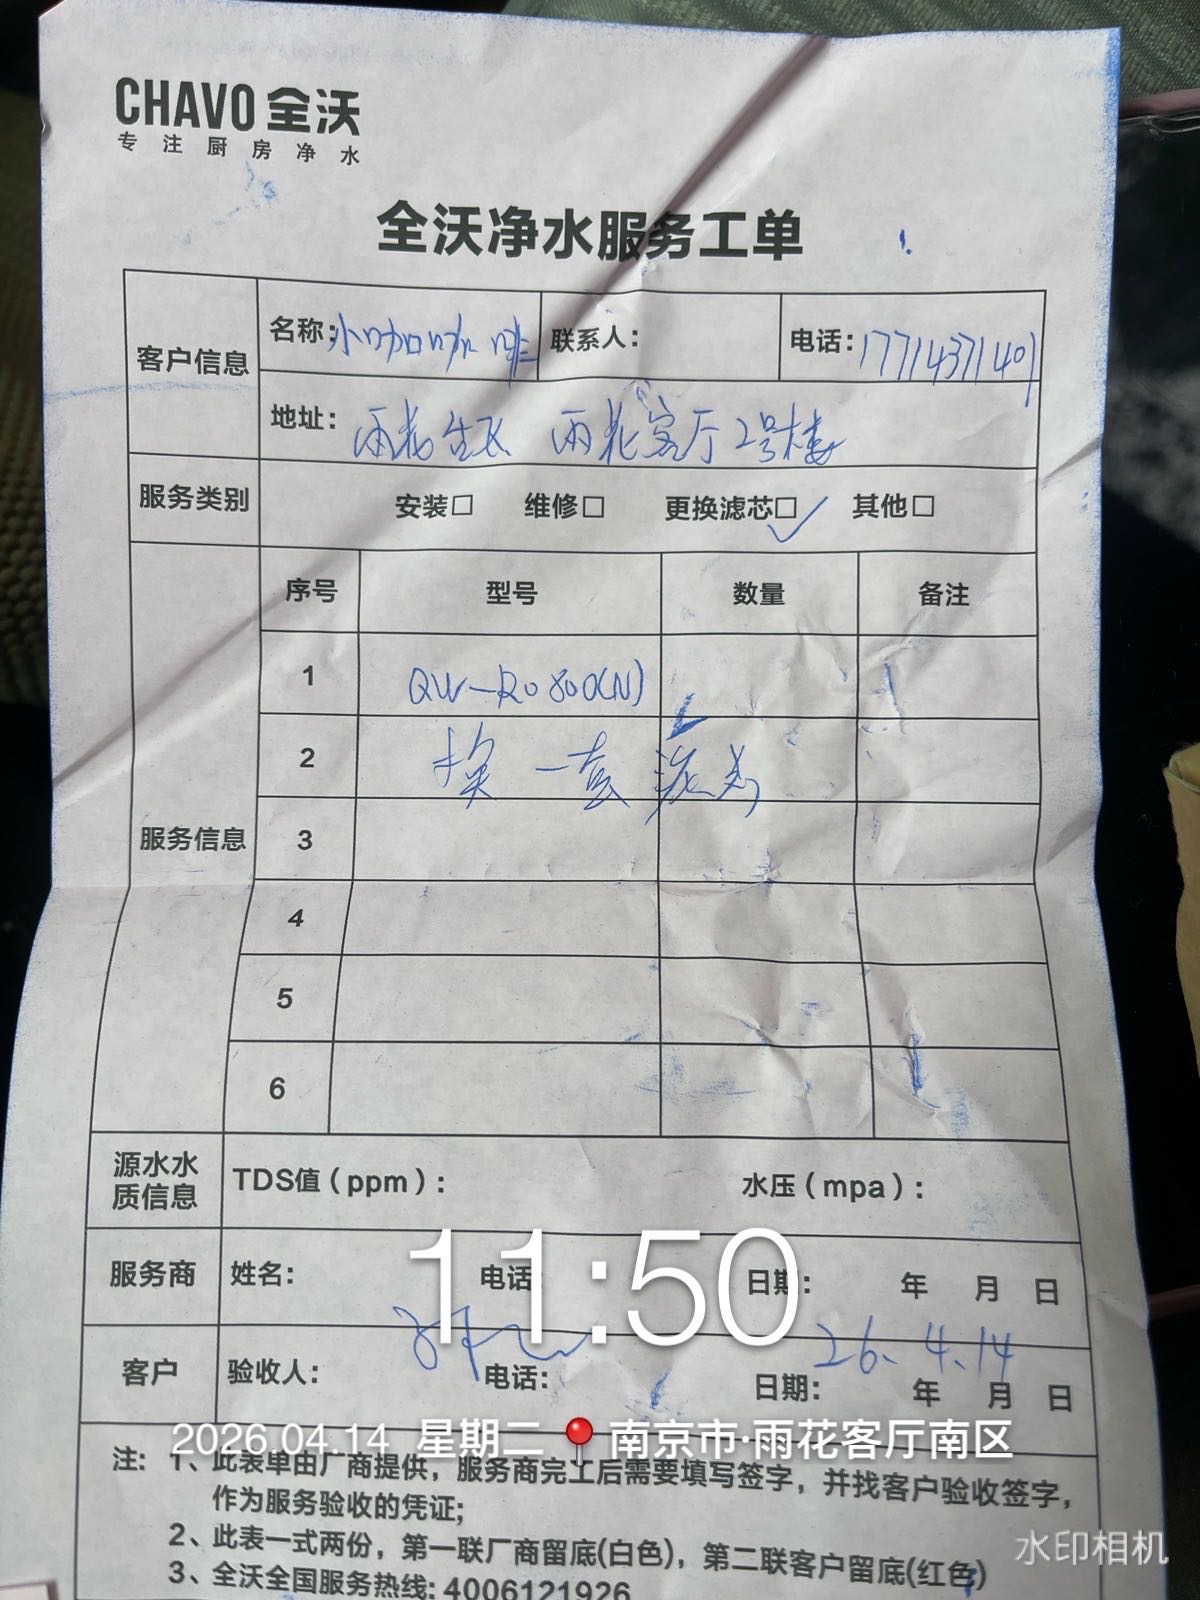 CHAVO 全沃
专注厨房净水
全沃净水服务工单
客户信息 名称:小咖咖啡 联系人: 电话:17714371401
地址: 雨花 雨花客厅2号楼
服务类别 安装□ 维修□ 更换滤芯□✓ 其他□
服务信息 序号 型号 数量 备注
1 QW-RO800(N)
2 换一套滤芯
3
4
5
6
源水水质信息 TDS值(ppm): 水压(mpa):
服务商 姓名: 电话: 日期: 年 月 日
11:50
26.4.14
客户 验收人: 电话: 日期: 年 月 日
2026.04.14 星期二 南京市·雨花客厅南区
注: 1、此表单由厂商提供，服务商完工后需要填写签字，并找客户验收签字，
作为服务验收的凭证;
2、此表一式两份，第一联厂商留底(白色)，第二联客户留底(红色)
3、全沃全国服务热线: 4006121926
水印相机